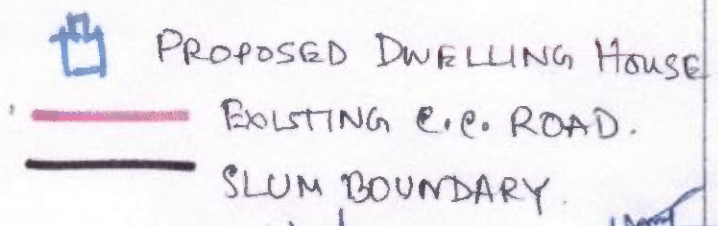 PROPOSED DWELLING HOUSE
EXISTING C.C. ROAD.
SLUM BOUNDARY.